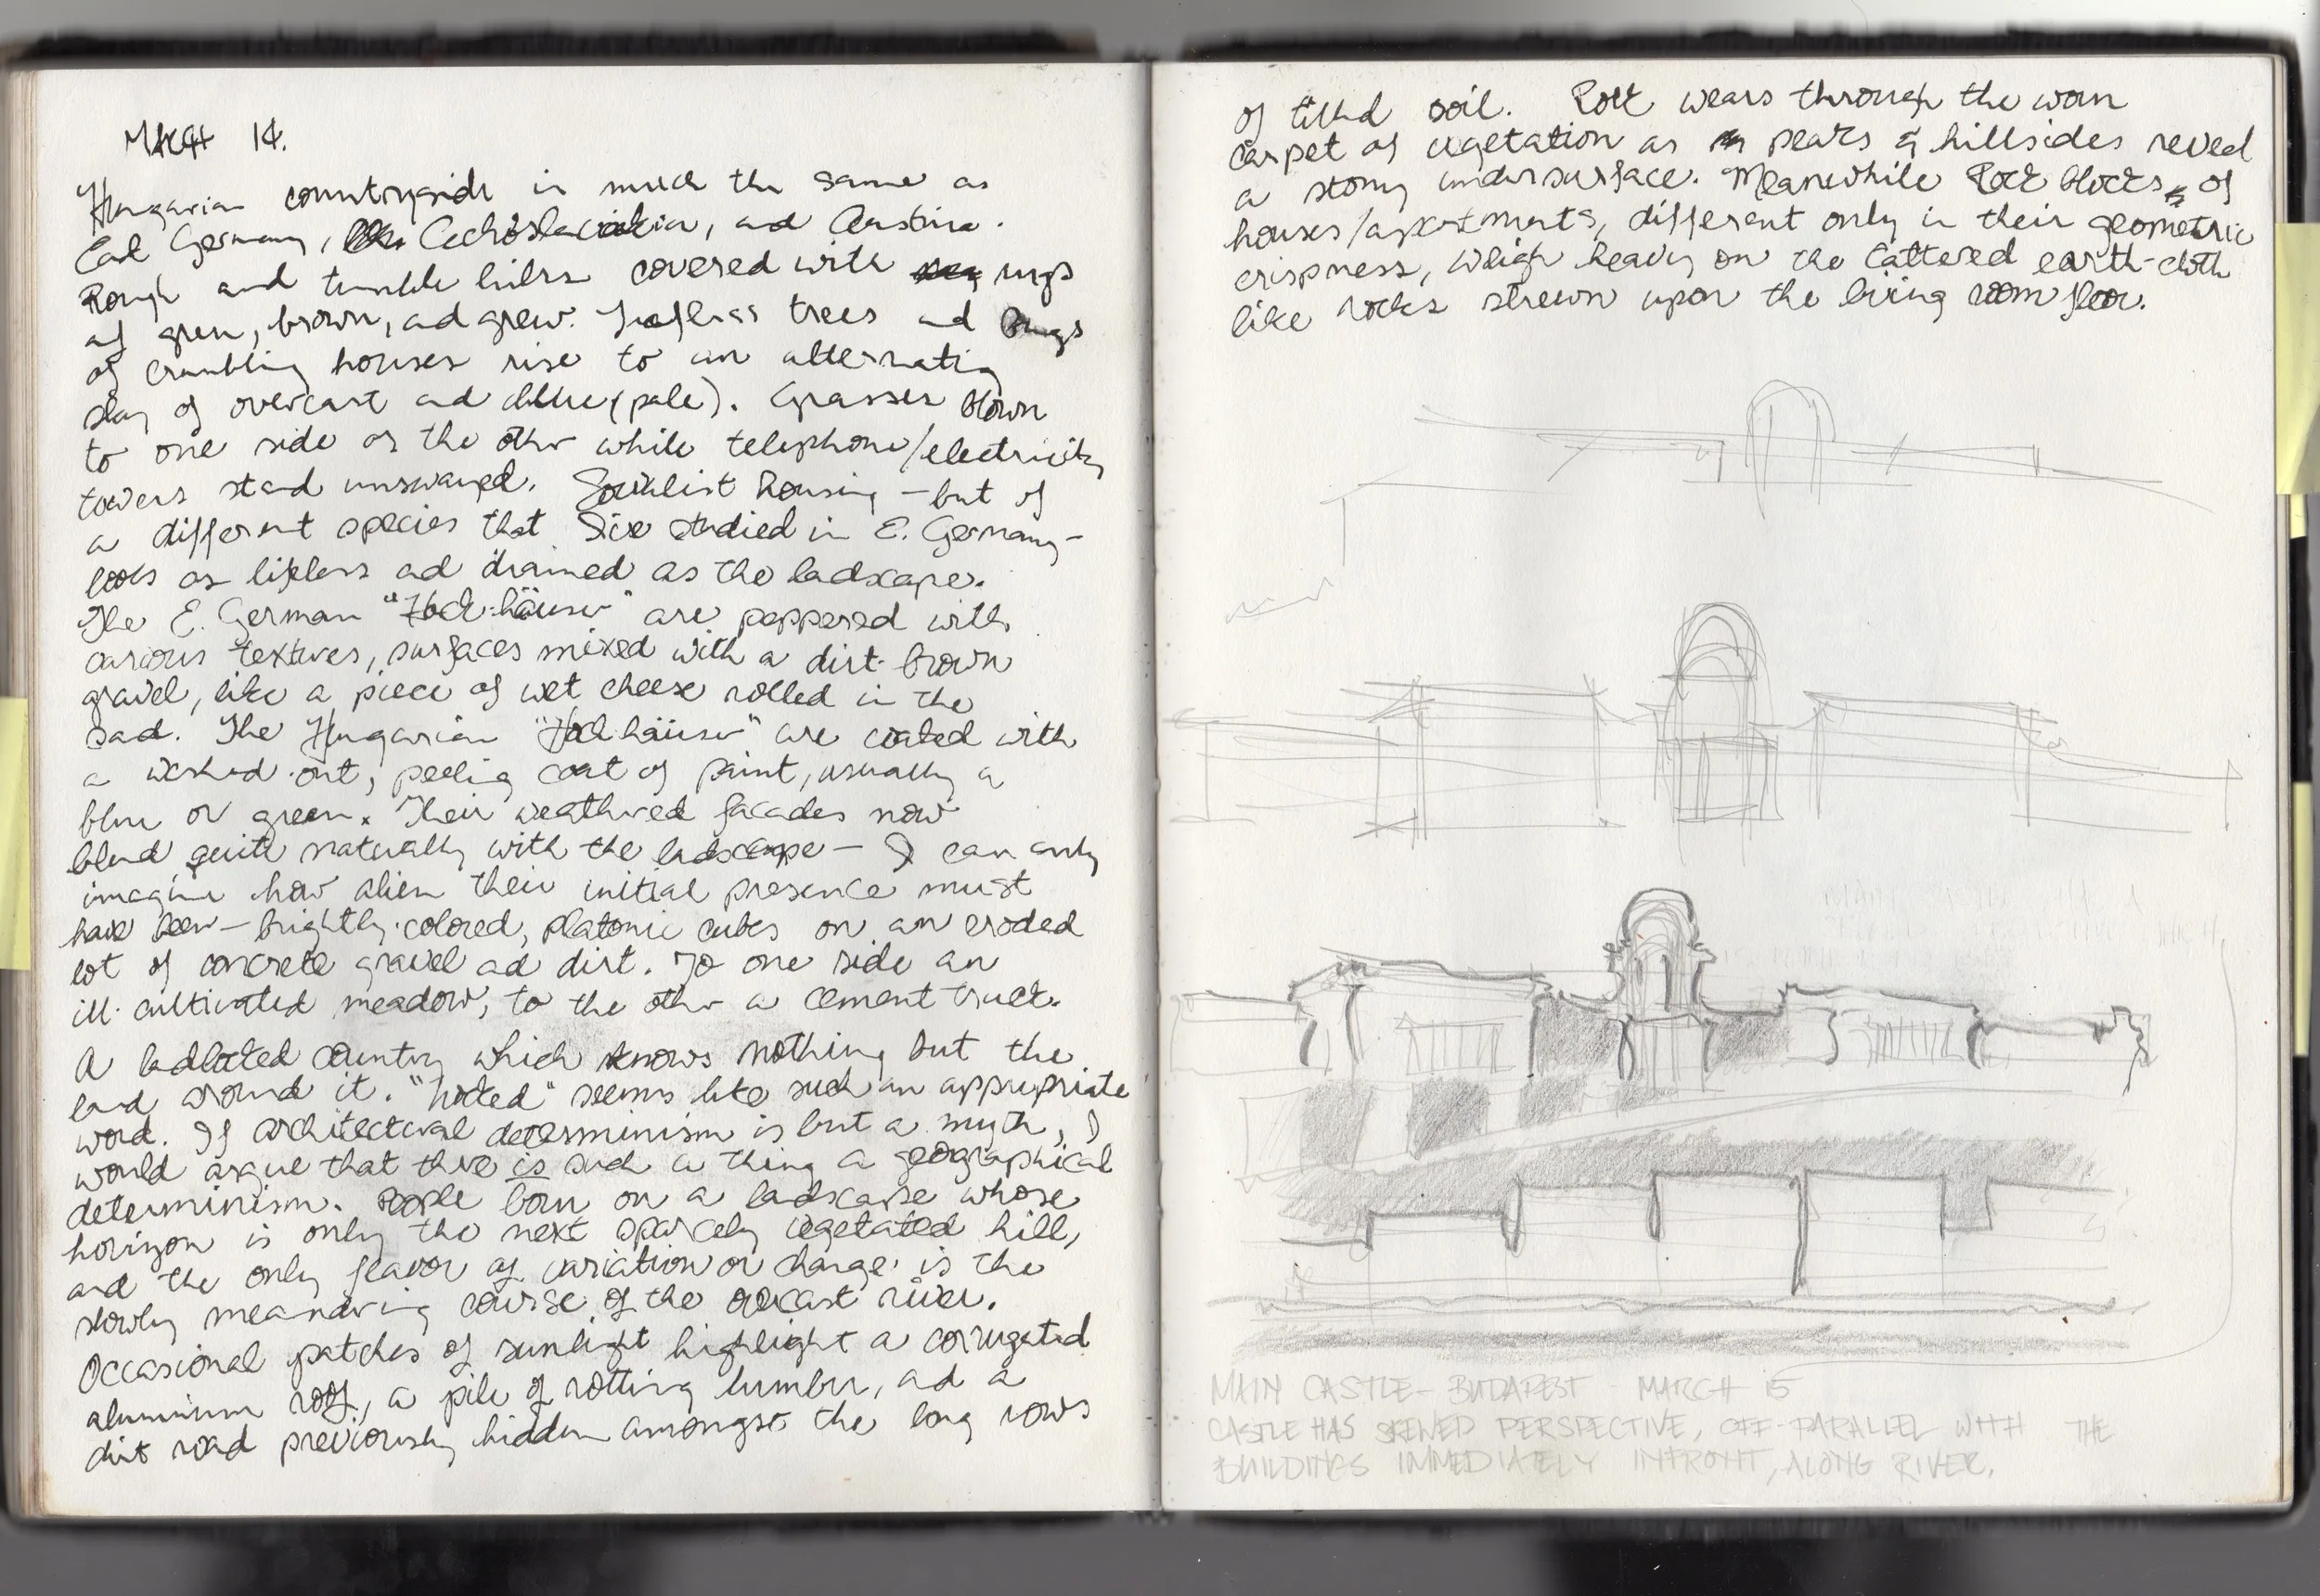 MARCH 14.
Hungarian countryside is much the same as
East Germany, Cechoslavakia, and Austria.
Rough and tumble hills covered with rugs
of green, brown, and grew. Leafless trees and
of crumbling houses rise to an alternating
sky of overcast and blue (pale). Grasses blown
to one side or the other while telephone/electricity
towers stand unswayed. Socialist housing – but of
a different species that I've studied in E. Germany –
looks as lifeless and drained as the landscape.
The E. German "Hochhäuser" are peppered with
various textures, surfaces mixed with a dirt-brown
gravel, like a piece of wet cheese rolled in the
sand. The Hungarian "Hochhäuser" are coated with
a washed-out, peeling coat of paint, usually a
blue or green. Their weathered facades now
blend quite naturally with the landscape – I can only
imagine how alien their initial presence must
have been – brightly-colored, platonic cubes on an eroded
lot of concrete gravel and dirt. To one side an
ill-cultivated meadow, to the other a cement truck.
A landlocked country which knows nothing but the
land around it. "Locked" seems like such an appropriate
word. If architectural determinism is but a myth, I
would argue that there is such a thing a geographical
determinism. People born on a landscape whose
horizon is only the next sparcely vegetated hill,
and the only flavor of variation or change is the
slowly meandering course of the overcast river.
Occasional patches of sunlight highlight a corrugated
aluminum roof, a pile of rotting lumber, and a
dirt road previously hidden amongst the long rows
of tilled soil. Rock wears through the worn
carpet of vegetation as peaks & hillsides reveal
a stony undersurface. Meanwhile Rock blocks of
houses/apartments, different only in their geometric
crispness, weigh heavily on the tattered earth-cloth
like rocks strewn upon the living room floor.
MAIN CASTLE – BUDAPEST - MARCH 15
CASTLE HAS SKEWED PERSPECTIVE, OFF-PARALLEL WITH THE
BUILDINGS IMMEDIATELY INFRONT, ALONG RIVER.